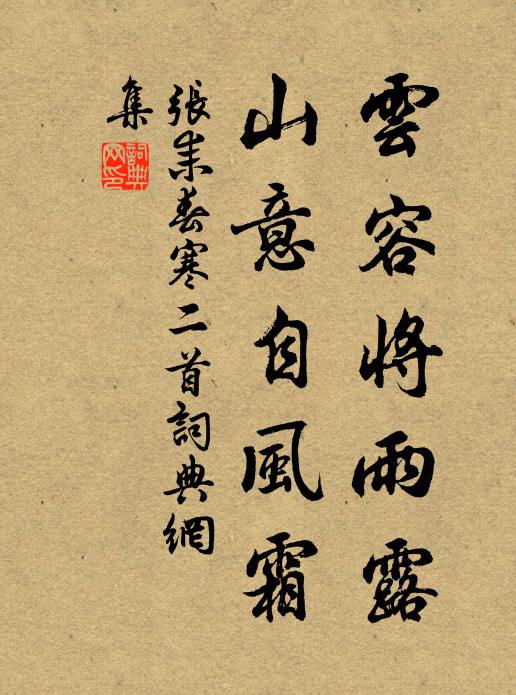 雲容將雨露
山意自風霜
張耒春寒二首詞典網
集
詞典网印